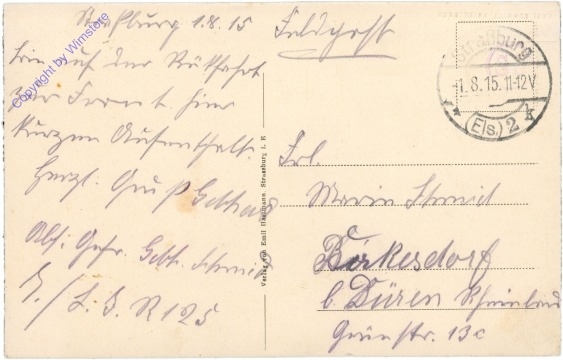 Straßburg 1.8.15
Feldpost
Bin auf der Rückfahrt
zur Front. hier
kurzen Aufenthalt.
Herzl. Gruß Gebhard
Abs: Gefr. Gebh. Schmid
L. J. R 125
Frl.
Maria Schmid
Birkesdorf
b. Düren Rheinland
Grünstr. 13c
Straßburg
1.8.15.11-12V
(Els.) 2 k
Verlag von Emil Hartmann, Strassburg i. E
Copyright by Wimstore